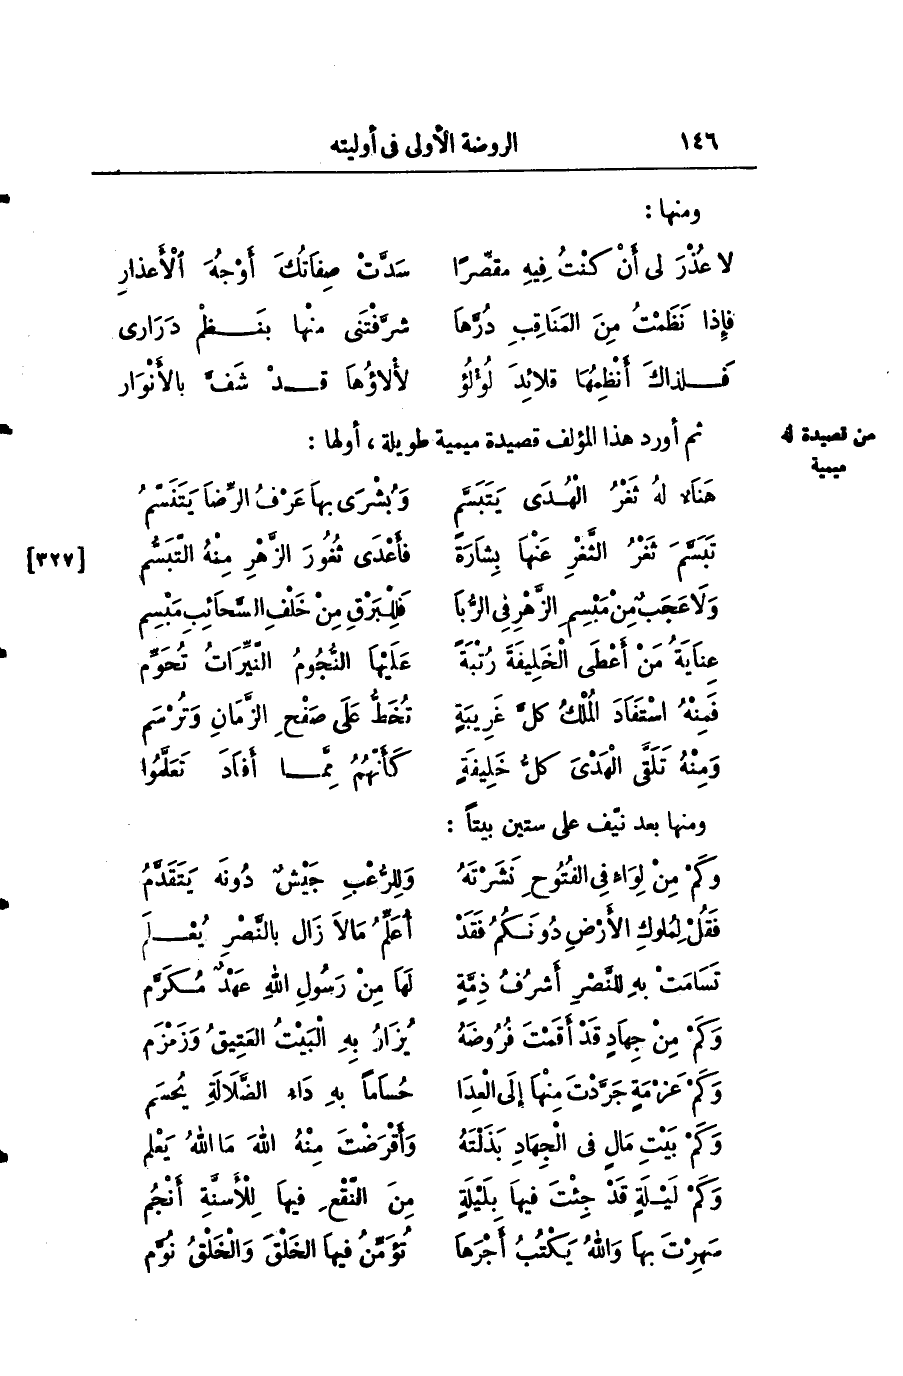 ١٤٦ الروضة الأولى فى أوليته
ومنها :
لا عُذْرَ لى أَنْ كنْتُ فِيهِ مقصِّرًا سَدَّتْ صِفَاتُكَ أَوْجُهَ ٱلْأَعذارِ
فإِذا نَظَمْتُ مِنَ المَنَاقِبِ دُرَّهَا شرَّفْتَنى منْها بنَظْمِ دَرَارى
فلذاكَ أَنْظِمُهَا قلائِدَ لُؤلُؤ لأْلاؤُهَا قدْ شَفَّ بالأَنْوَار
ثم أورد هذا المؤلف قصيدة ميمية طويلة ، أولها :
من قصيدة له
ميمية
هَنَاء لهُ ثَغْرُ الْهُدَى يَتَبَسَّم وَبُشْرَى بهاعَرْفُ الرِّضَا يَتَنَسَّمُ
تَبَسَّمَ ثَغْرُ الثَّغْرِ عَنْهَا بِشارَةً فأَعْدَى ثُغُورَ الزَّهْرِ مِنْهُ التَّبَسُّم
[٣٢٧]
وَلَاعَجَبٌ مِنْ مَبْسِمِ الزَّهْرِ فِى الرُّبا فَلِلْبَرْقِ مِنْ خَلْفِ السَّحائبِ مَبْسِم
عِنايَةُ مَنْ أَعْطَى الْخَلِيفَةَ رُتْبَةً عَلَيْهَا النُّجُومُ النَّيِّرَاتُ تُحَوِّم
فَمِنْهُ اسْتَفَادَ المُلْكُ كلَّ غَرِيبَةٍ تُخَطُّ عَلَى صَفْحِ الزَّمَانِ وَتُرْسَم
وَمِنْهُ تَلَقَّى الْهَدْىَ كلُّ خَلِيفَةٍ كَأَنَّهُمُ مِمَّا أَفَادَ تَعَلَّمُوا
ومنها بعد نيّف على ستين بيتاً :
وَكَمْ مِنْ لِوَاء فِى الفُتُوحِ نَشَرْتَهُ وَلِلرُّعْبِ جَيْشٌ دُونَه يَتَقَدَّمُ
فَقُلْ لِمُلوكِ الأَرْضِ دُونَكمُ فَقَدْ أُعَلِّمُ مَالاَ زَال بالنَّصْرِ يُعْلَم
تَسَامَتْ بهِ لِلنَّصْرِ أَشرُفُ ذِمَّةٍ لَهَا مِنْ رَسُولِ اللهِ عهْدٌ مُكرَّم
وَكَمْ مِنْ جِهادٍ قَدْ أَقَمْتَ فُرُوضَهُ يُزَارُ بِهِ الْبَيْتُ العَتِيقُ وَزَمْزَم
وَكَمْ عَزْمَةٍ جَرَّدْتَ مِنْهَا إِلَى الْعِدَا حُسَاماً بهِ دَاء الضَّلَالَةِ يُحسَم
وَكَمْ بَيْتِ مَالٍ فى الْجِهَادِ بَذَلْتَهُ وَأَقْرَضْتَ مِنْهُ اللهَ مَا اللهُ يَعْلم
وَكَمْ لَيْلَةٍ قَدْ جِئْتَ فيهَا بِلَيْلَةٍ مِنَ النَّقْعِ فيهَا لِلْأَسنَّةِ أَنْجُم
سَهِرْتَ بهَا وَاللهُ يَكْتُبُ أَجْرَهَا تُؤَمِّنُ فيهَا الخَلْقَ وَالْخَلْقُ نُوَّم